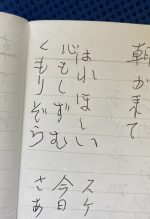 朝が来て
はれ ほしい
心もしずむ
くもりぞら
スケ
今日
さあ